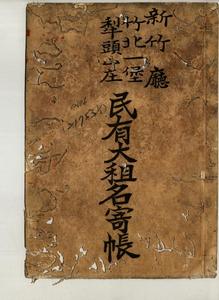 新竹廳
竹北一堡
犂頭山庄
民有大租名寄帳